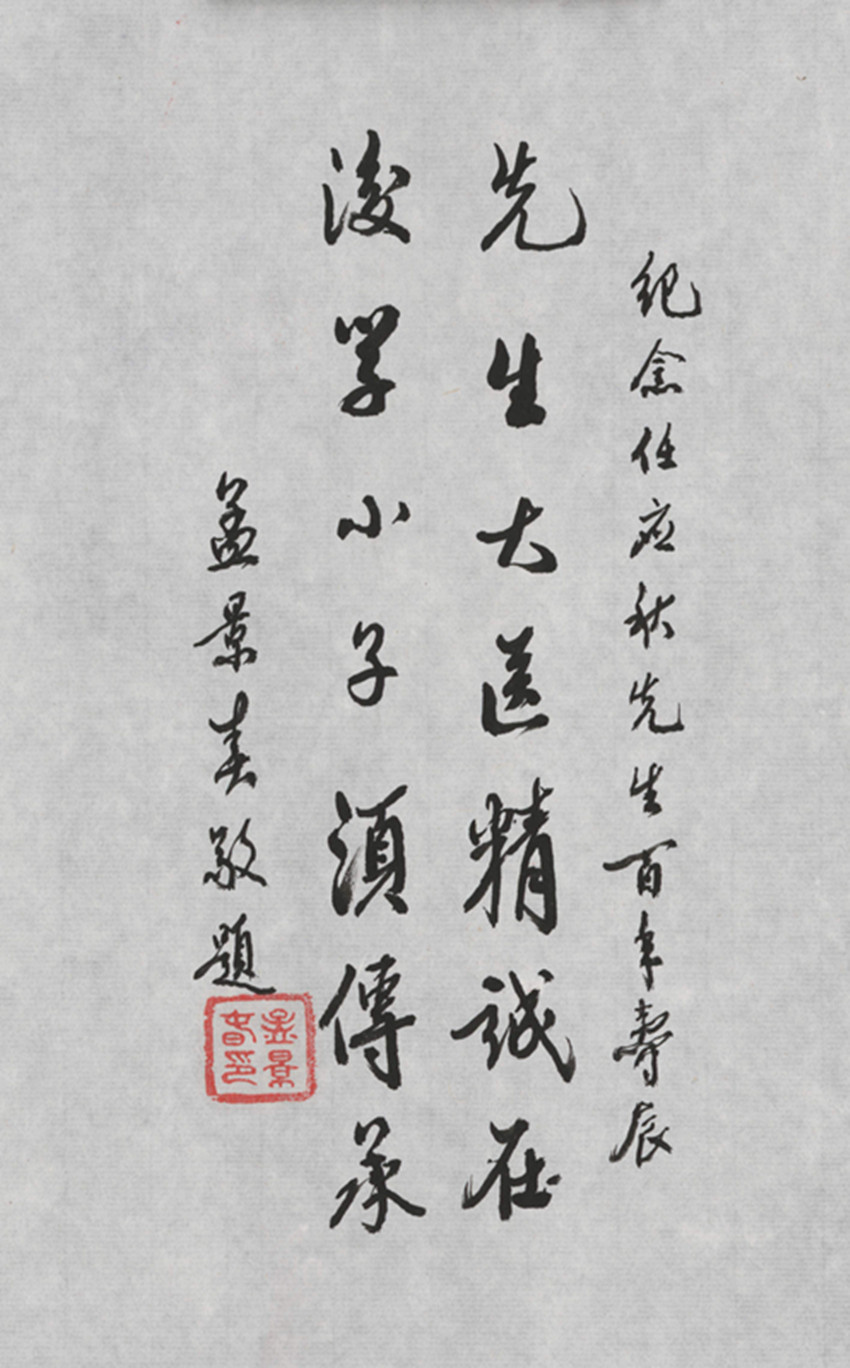 纪念任应秋先生百年壽辰
先生大医精誠在
後学小子須傳承
孟景春敬題
孟景春印